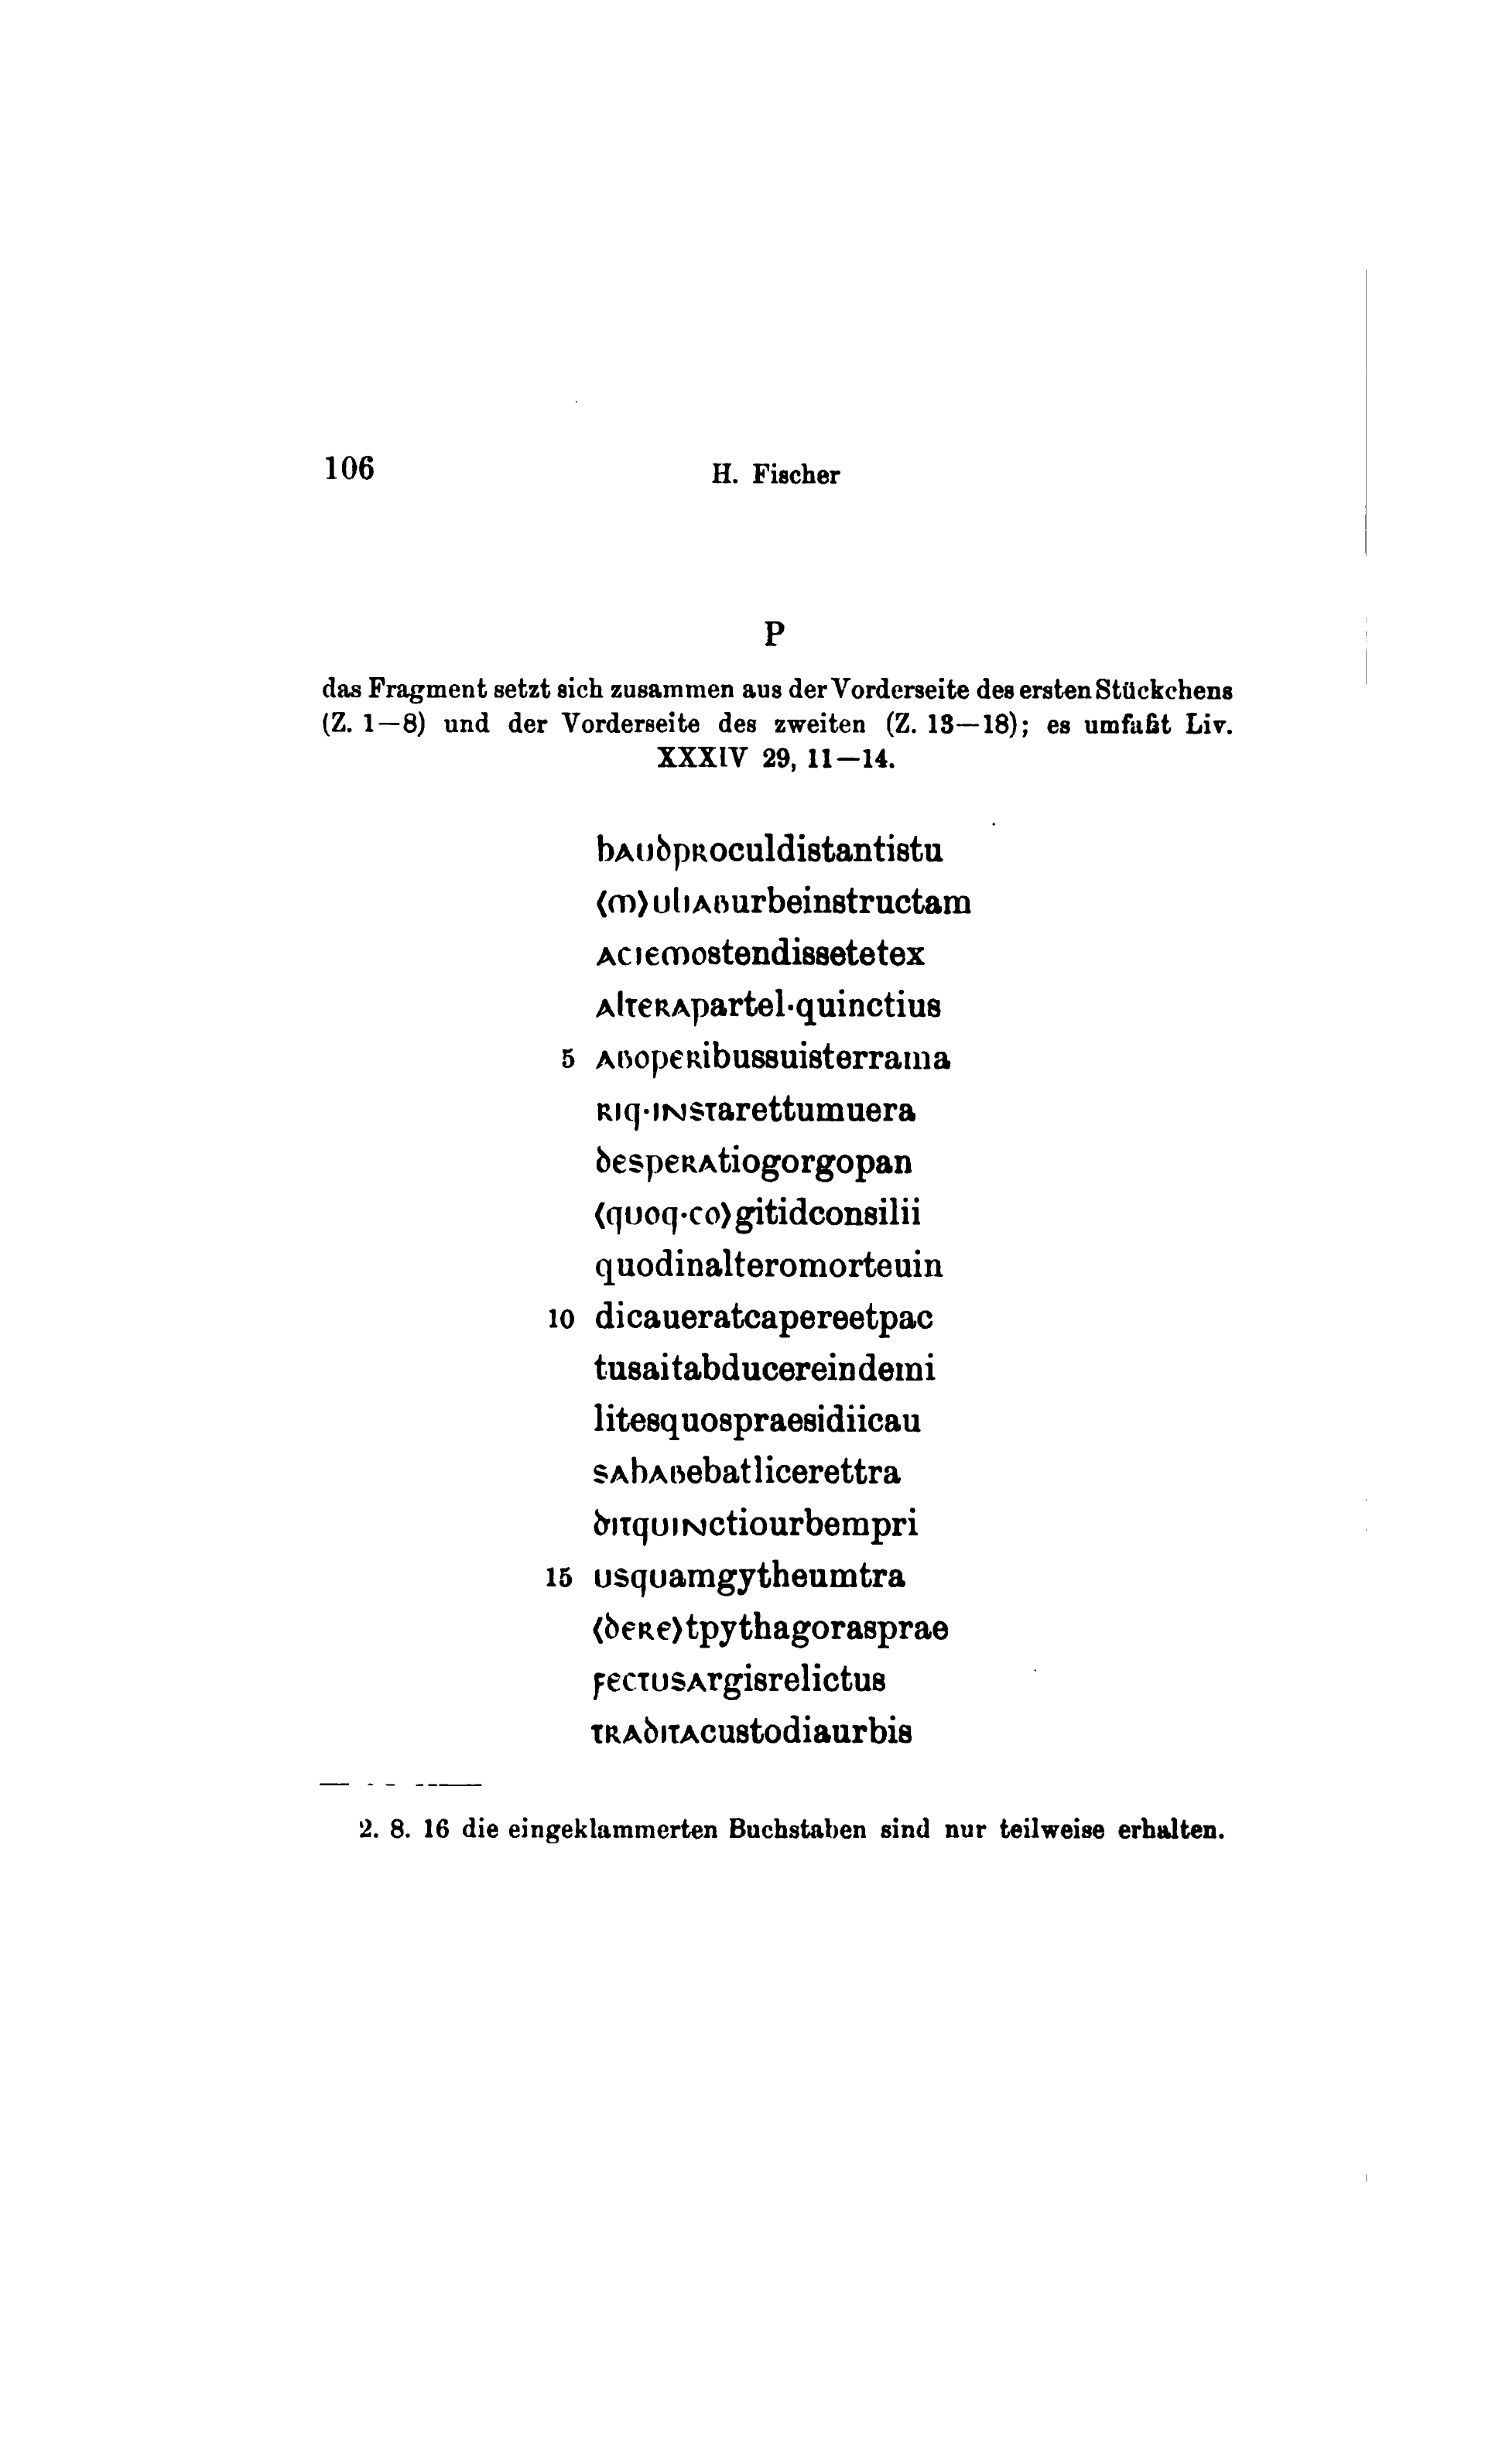 106 H. Fischer
P
das Fragment setzt sich zusammen aus der Vorderseite des ersten Stückchens
(Z. 1—8) und der Vorderseite des zweiten (Z. 13—18); es umfaßt Liv.
XXXIV 29, 11—14.
haudproculdistantistu
⟨m⟩uliaburbeinstructam
aciemostendissetetex
alterapartel·quinctius
5 aboperibussuisterrama
riq·instarettumuera
desperatiogorgopan
⟨quoq·co⟩gitidconsilii
quodinalteromorteuin
10 dicaueratcapereetpac
tusaitabducereindemi
litesquospraesidiicau
sahabebatlicerettra
ditquinctiourbempri
15 usquamgytheumtra
⟨dere⟩tpythagorasprae
fectusargisrelictus
traditacustodiaurbis
2. 8. 16 die eingeklammerten Buchstaben sind nur teilweise erhalten.